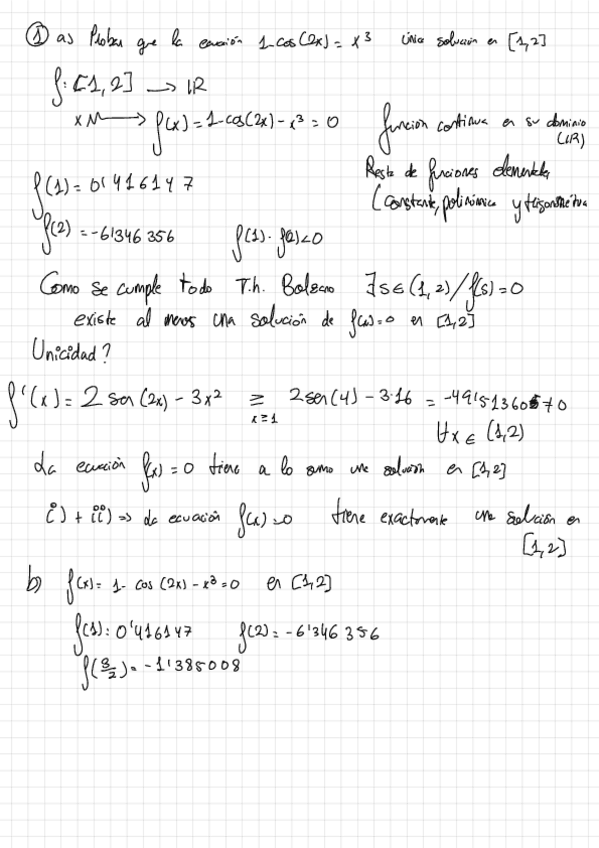 ① a) Probar que la ecuación 1-cos(2x) = x³ única solución en [1,2]
f: [1,2] → IR
x ⟼ f(x) = 1-cos(2x) - x³ = 0 función continua en su dominio (IR)
Resta de funciones elementales
(constante, polinómica y trigonométrica
f(1) = 0'416147
f(2) = -6'346356 f(1)·f(2)<0
Como se cumple todo T.h. Bolzano ∃s∈(1,2)/f(s)=0
existe al menos una solución de f(x)=0 en [1,2]
Unicidad?
f'(x) = 2 sen(2x) - 3x² ≥ 2sen(4) - 3·16 = -49'51360 ≠ 0
x≥1
∀x ∈ (1,2)
La ecuación f(x) = 0 tiene a lo sumo una solución en [1,2]
i) + ii) ⇒ la ecuación f(x)=0 tiene exactamente una solución en
[1,2]
b) f(x) = 1 - cos(2x) - x³ = 0 en [1,2]
f(1): 0'416147 f(2) = -6'346356
f(3/2) = -1'385008